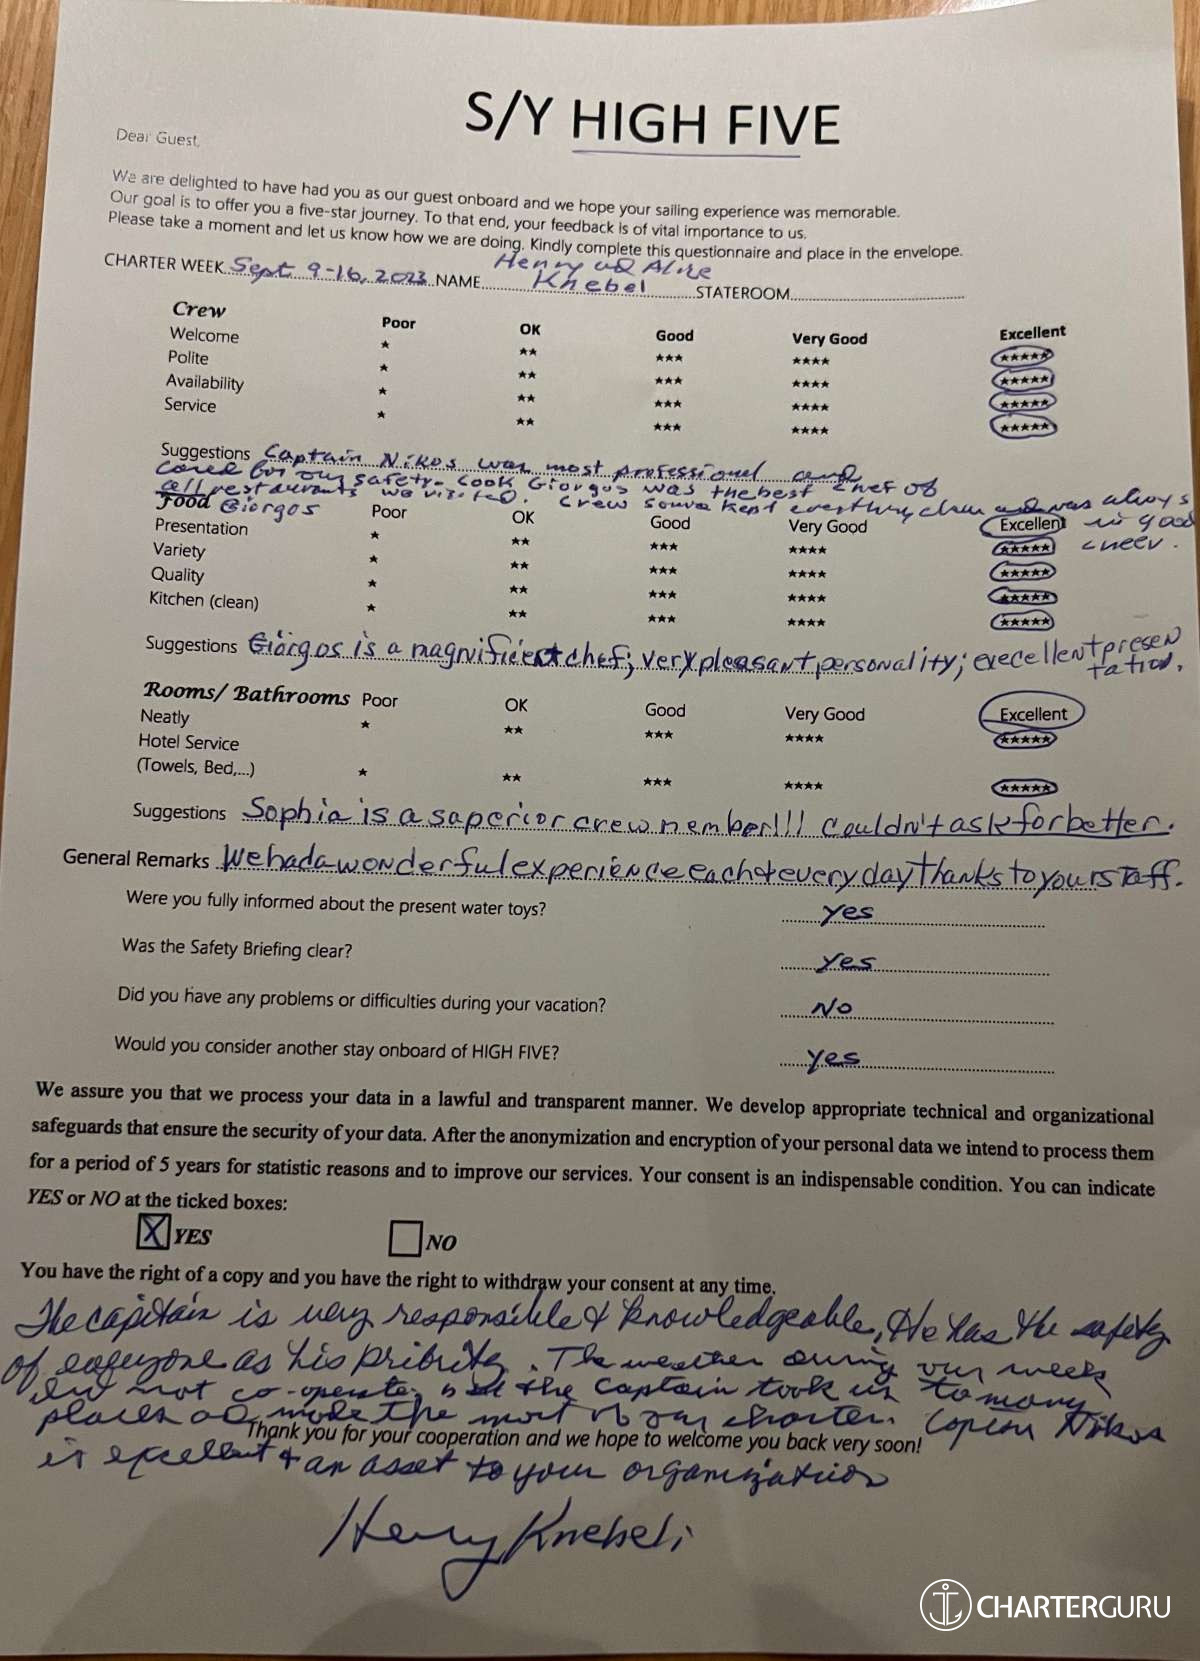 S/Y HIGH FIVE
Dear Guest,
We are delighted to have had you as our guest onboard and we hope your sailing experience was memorable.
Our goal is to offer you a five-star journey. To that end, your feedback is of vital importance to us.
Please take a moment and let us know how we are doing. Kindly complete this questionnaire and place in the envelope.
Henry
CHARTER WEEK Sept 9-16, 2023 NAME Knebel STATEROOM
Crew Poor OK Good Very Good Excellent
Welcome ★ ★★ ★★★ ★★★★ ★★★★★
Polite ★ ★★ ★★★ ★★★★ ★★★★★
Availability ★ ★★ ★★★ ★★★★ ★★★★★
Service ★ ★★ ★★★ ★★★★ ★★★★★
Suggestions Captain Nikos was most professional and
cared for our safety. Cook Giorgos was the best chef of
all restaurants we visited. Crew kept everything clean and was always
in good
cheer.
Food Giorgos Poor OK Good Very Good Excellent
Presentation ★ ★★ ★★★ ★★★★ ★★★★★
Variety ★ ★★ ★★★ ★★★★ ★★★★★
Quality ★ ★★ ★★★ ★★★★ ★★★★★
Kitchen (clean) ★ ★★ ★★★ ★★★★ ★★★★★
Suggestions Giorgos is a magnificent chef; very pleasant personality; execellent presen
tation.
Rooms/ Bathrooms Poor OK Good Very Good Excellent
Neatly ★ ★★ ★★★ ★★★★ ★★★★★
Hotel Service
(Towels, Bed,...) ★ ★★ ★★★ ★★★★ ★★★★★
Suggestions Sophia is a saperior crew member!!! Couldn't ask for better.
General Remarks We had a wonderful experience each & every day thanks to your staff.
Were you fully informed about the present water toys? yes
Was the Safety Briefing clear? yes
Did you have any problems or difficulties during your vacation? No
Would you consider another stay onboard of HIGH FIVE? yes
We assure you that we process your data in a lawful and transparent manner. We develop appropriate technical and organizational
safeguards that ensure the security of your data. After the anonymization and encryption of your personal data we intend to process them
for a period of 5 years for statistic reasons and to improve our services. Your consent is an indispensable condition. You can indicate
YES or NO at the ticked boxes:
X YES NO
You have the right of a copy and you have the right to withdraw your consent at any time.
The capitain is very responsible & knowledgeable, He has the safety
of everyone as his priority. The weather during our week
did not co-operate, but the Captain took us to many
places and made the most of our charter. Nikos
Thank you for your cooperation and we hope to welcome you back very soon!
is excellent & an asset to your organization
Henry Knebel
CHARTERGURU